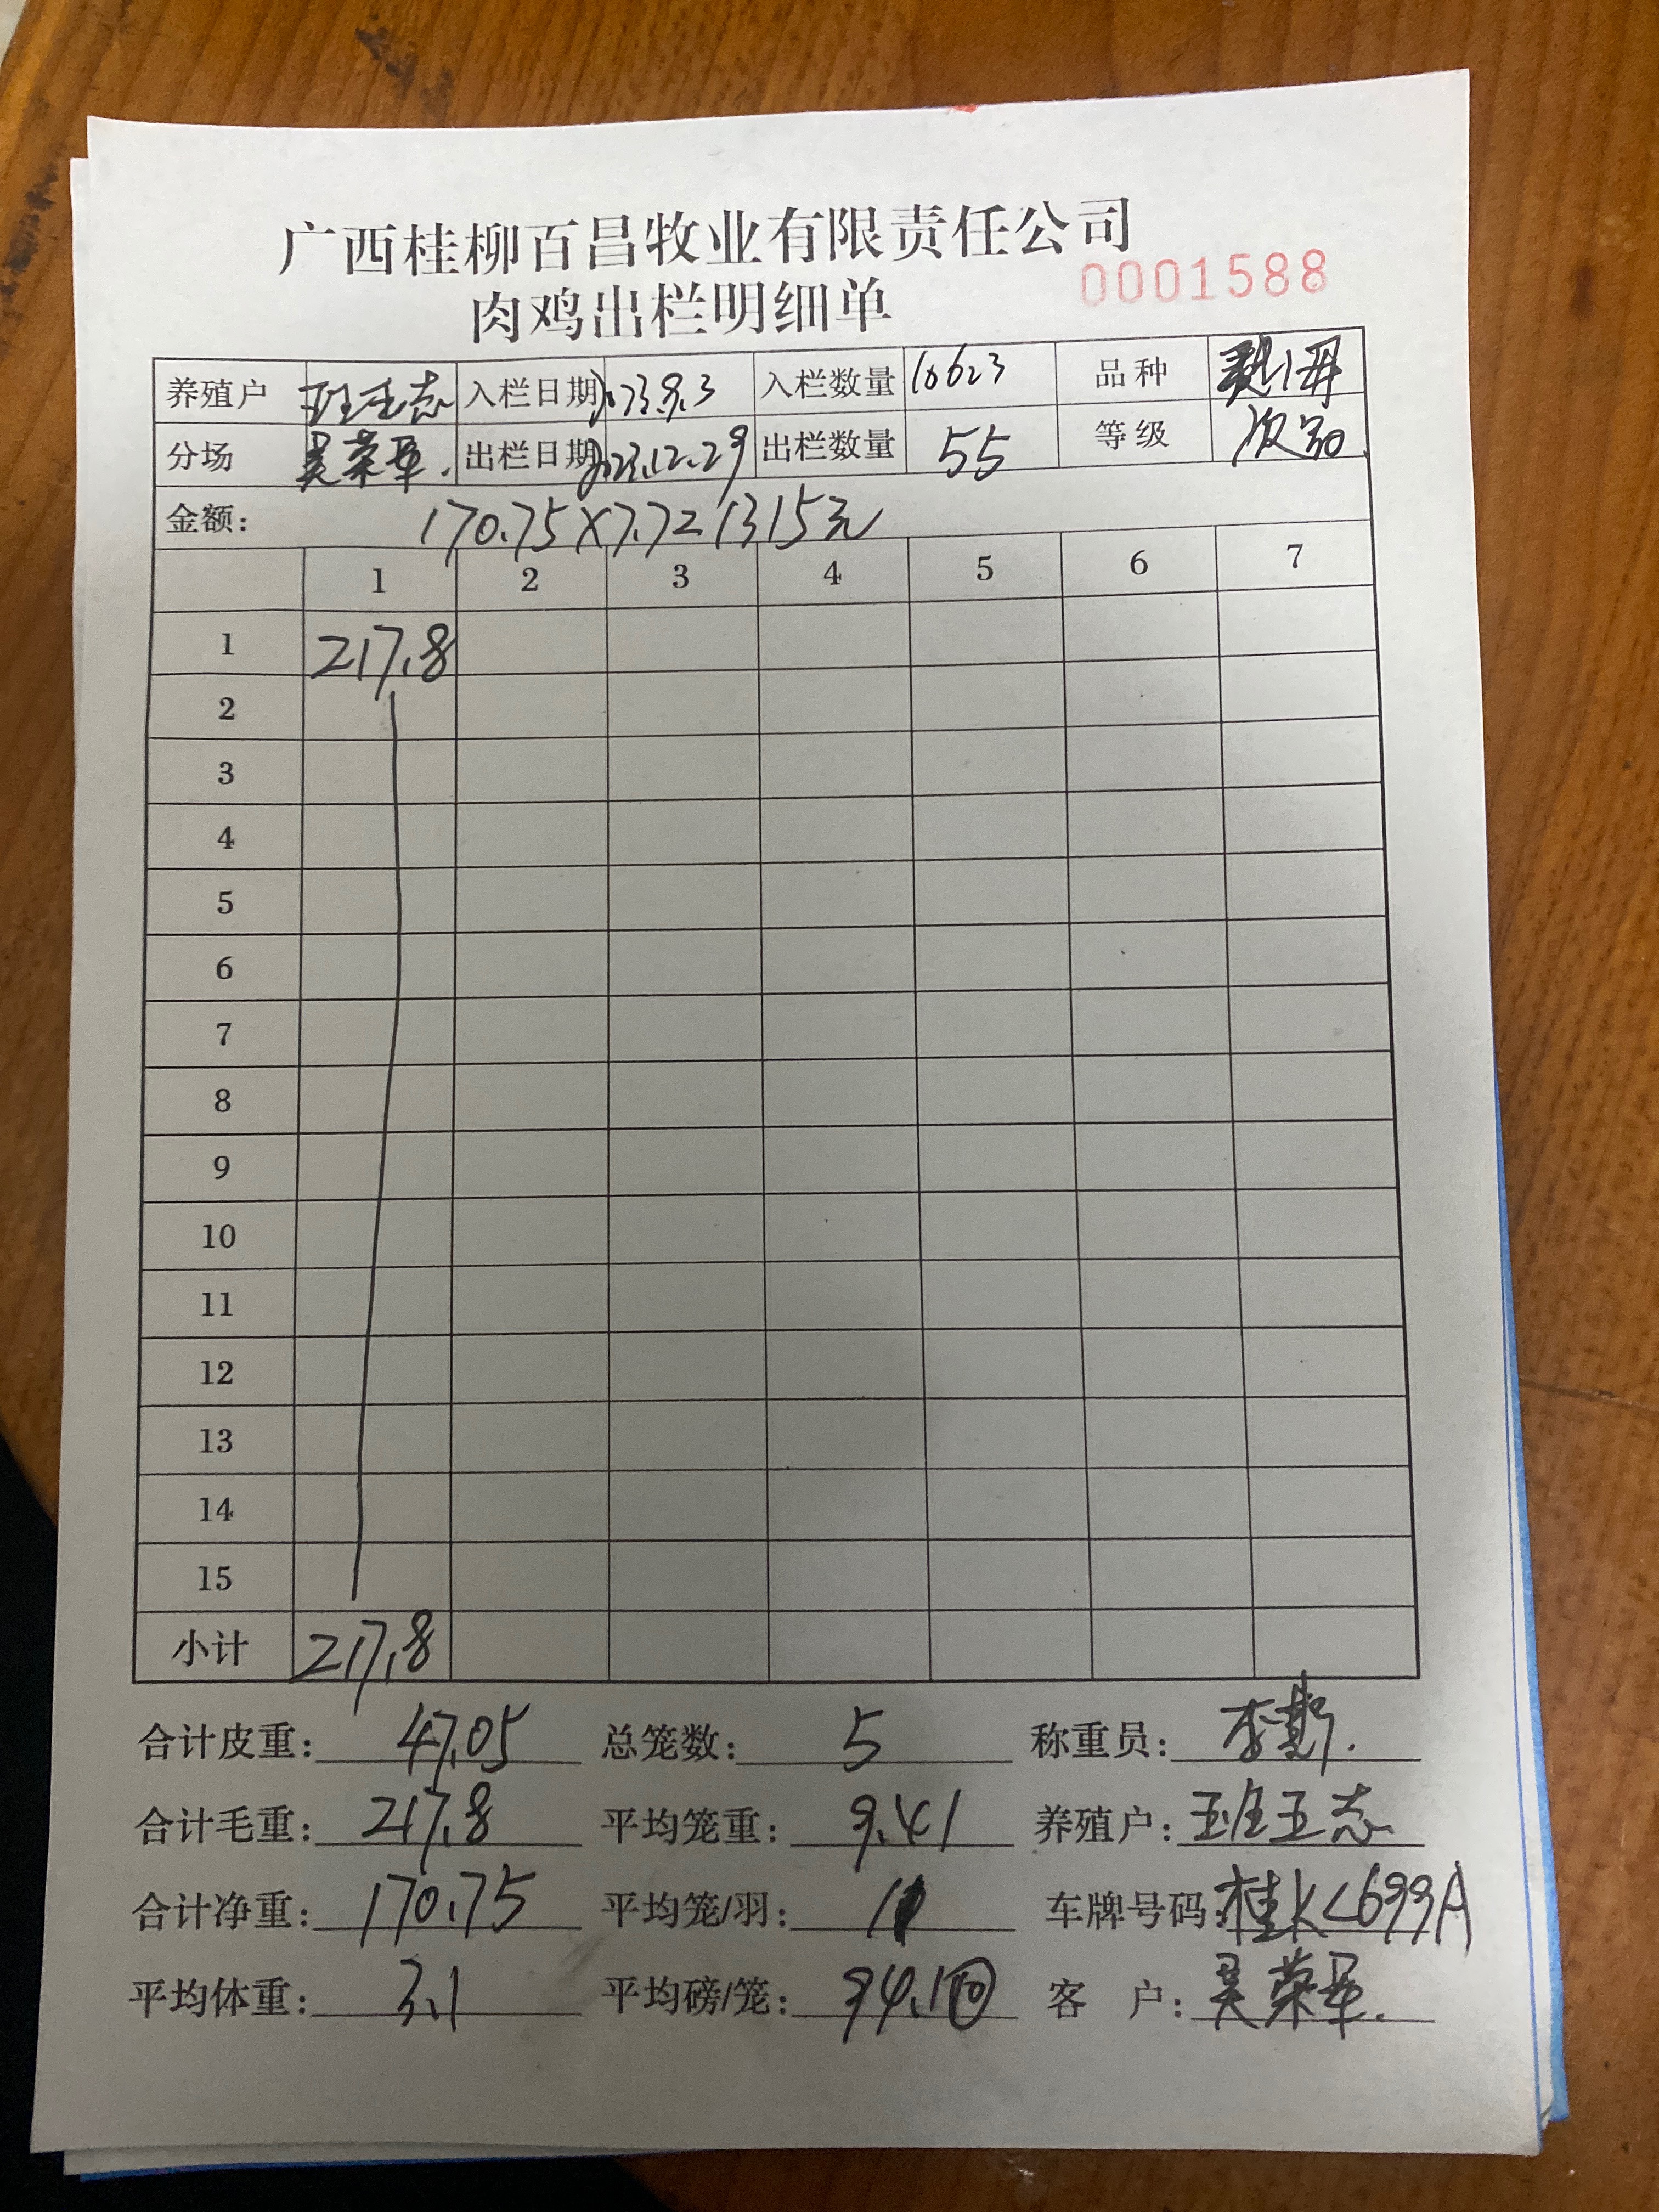 广西桂柳百昌牧业有限责任公司
肉鸡出栏明细单 0001588
养殖户 班玉态 入栏日期 2023.9.3 入栏数量 10623 品种
分场 吴荣军. 出栏日期 2023.12.29 出栏数量 55 等级 次品
金额: 170.75×7.7=1315元
1 2 3 4 5 6 7
1 217.8
2
3
4
5
6
7
8
9
10
11
12
13
14
15
小计 217.8
合计皮重: 47.05 总笼数: 5 称重员: 李
合计毛重: 217.8 平均笼重: 9.41 养殖户: 班玉态
合计净重: 170.75 平均笼/羽: 11 车牌号码: 桂KL699A
平均体重: 3.1 平均磅/笼: 94.1 客 户: 吴荣军.